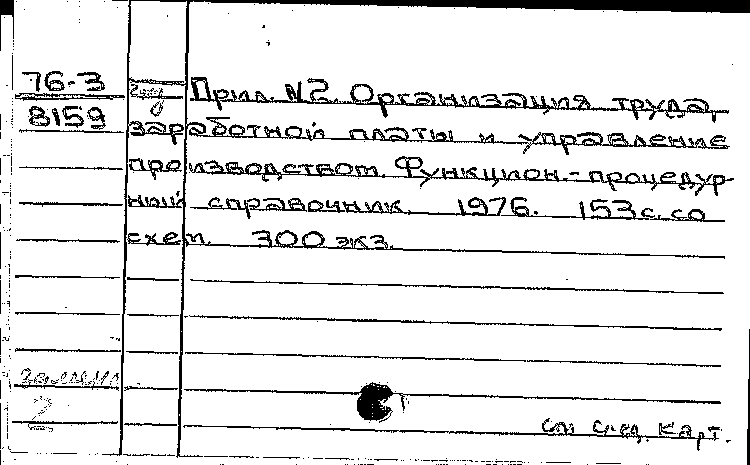 76-3
8159
Прил. №2. Организация труда,
заработной платы и управление
производством. Функцион.-процедур-
ный справочник. 1976. 153 с. со
схем. 300 экз.
2
см след. карт.